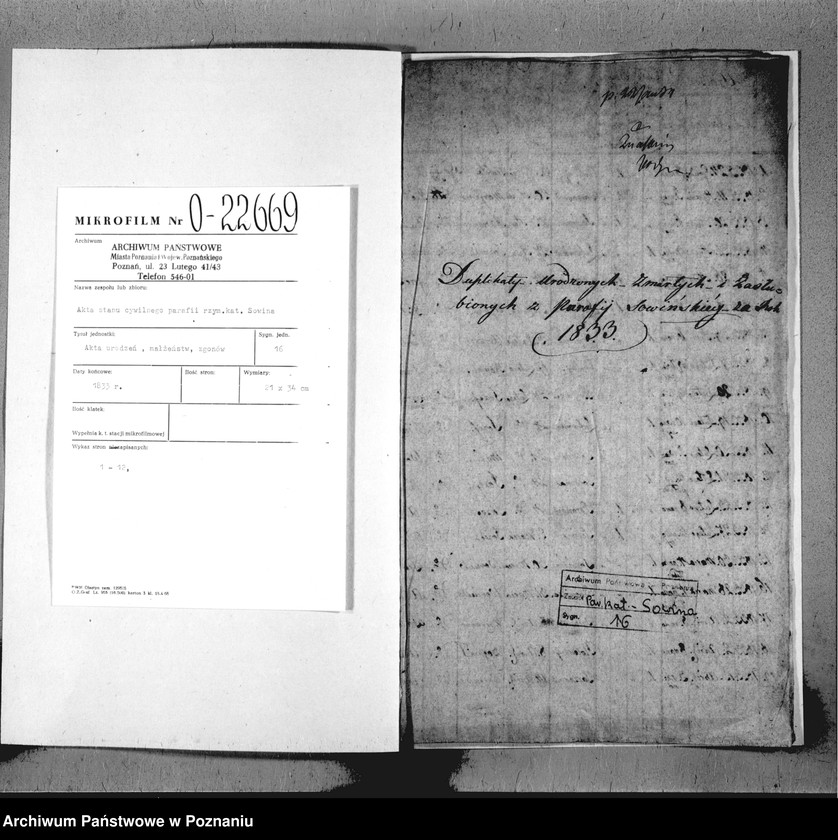 MIKROFILM Nr O-22669
Archiwum
ARCHIWUM PAŃSTWOWE
Miasta Poznania i Wojew. Poznańskiego
Poznań, ul. 23 Lutego 41/43
Telefon 546-01
Nazwa zespołu lub zbioru:
Akta stanu cywilnego parafii rzym.kat. Sowina
Tytuł jednostki:
Sygn. jedn.
Akta urodzeń , małżeństw, zgonów
16
Daty końcowe:
Ilość stron:
Wymiary:
1833 r.
21 x 34 cm
Ilość klatek:
Wypełnia k. t. stacji mikrofilmowej
Wykaz stron niezapisanych:
1 - 12,
Duplikaty Urodzonych Zmarłych i Zaślu-
bionych z Parafij Sowińskiéy za Rok
1833.
Archiwum Państwowe
Zespół Par. kat - Sowina
Sygn. 16
Archiwum Państwowe w Poznaniu